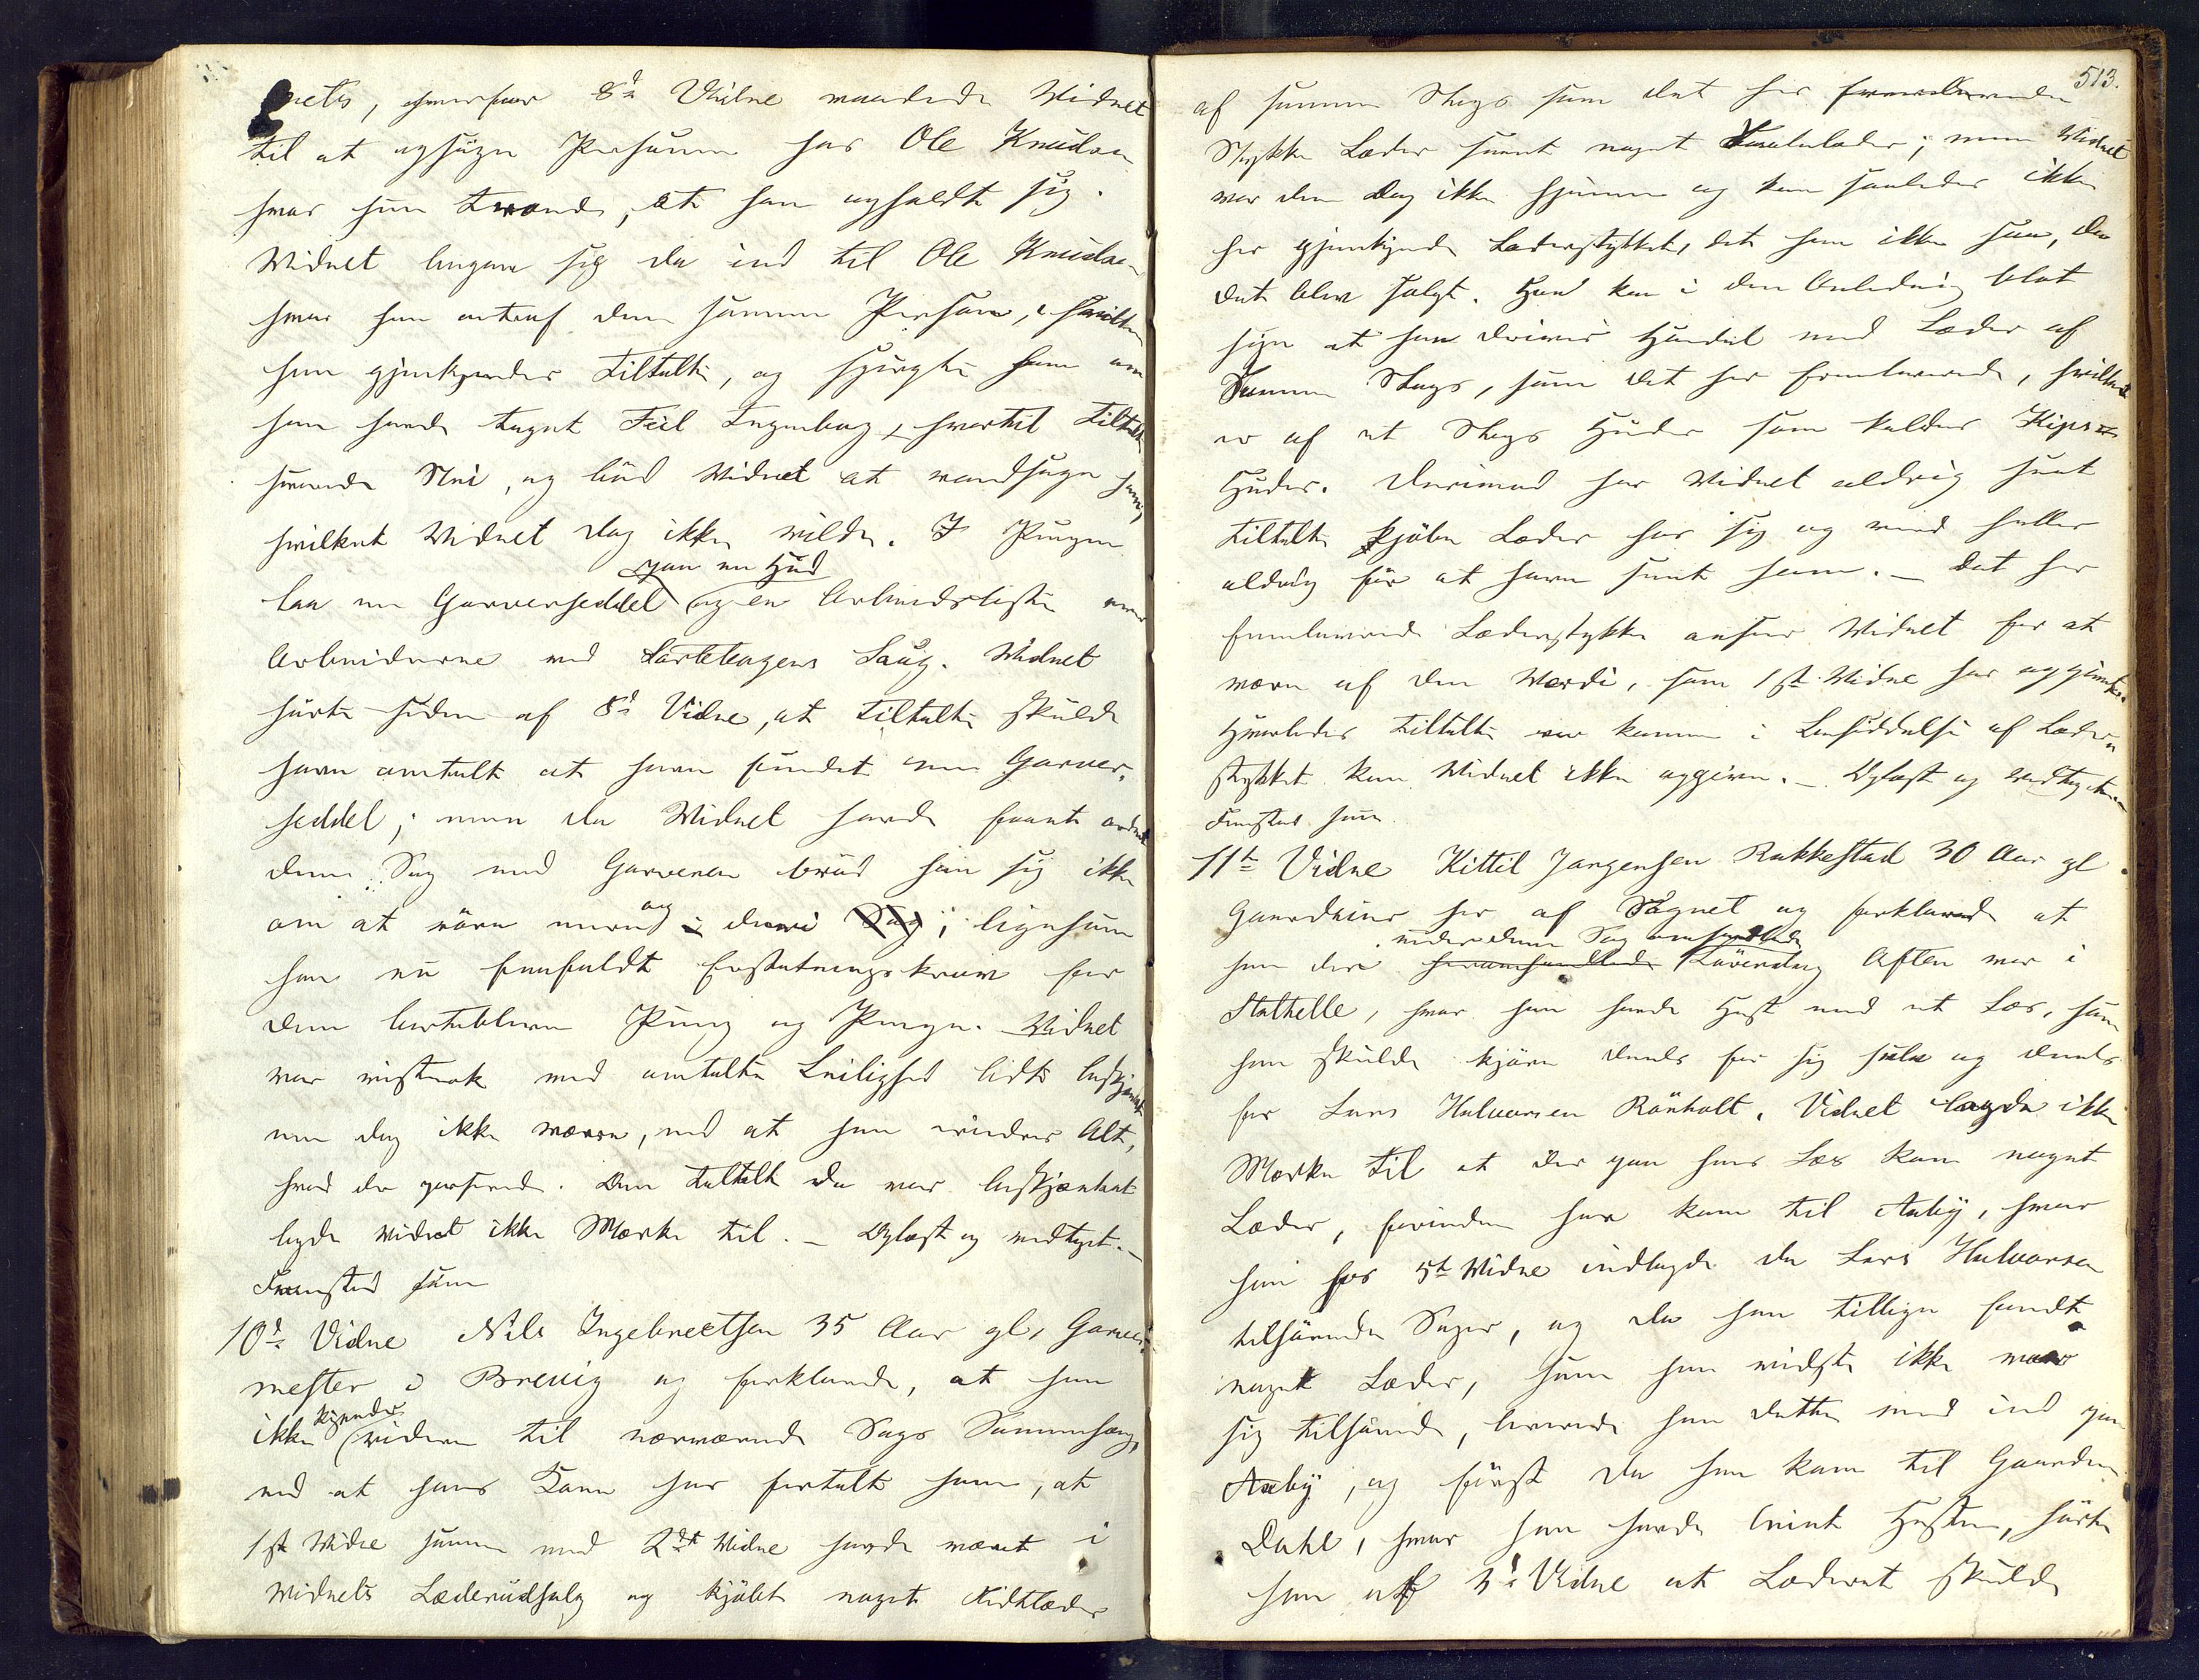 nets, hvorpaa 8de Vidne anmodede Vidnet
til at opsøge Personen hos Ole Knudsen
hvor hun troede, at han opholdt sig.
Widnet begav sig da ind til Ole Knudsen
hvor han antraf den samme Person, i hvilken
han gjenkjender Tiltalte, og spurgte ham om
han havde taget Feil Tegnebog, hvortil Tiltalte
svarede Nei, og bød Widnet at randsage ham,
hvilket Widnet dog ikke vilde. I Pungen
laa en Garverseddel paa en Hud og en Arbeidsliste over
Arbeiderne ved Saug. Widnet
hørte siden af 8de Vidne, at Tiltalte skulde
have omtalt at have fundet en Garver-
seddel; men da Widnet havde faaet ordnet
denne Sag med Garveren brød han sig ikke
om at røre mere og i denne Sag; ligesom
han nu frafaldt Erstatningskrav for
den bortblevne Pung og Penge. Widnet
var vistnok ved omtalte Leilighed lidt beskjænket
men dog ikke værre, end at han erindrer Alt,
hvad der passerede. Om Tiltalte da var beskjænket
lagde Widnet ikke Mærke til. – Oplæst og vedtaget. –
Fremstod som
10de Vidne Nils Ingebrectsen 35 Aar gl, Garver-
mester i Brevig og forklarede, at han
ikke kjender videre til nærværende Sags Sammenhæng,
end at hans Kone har fortalt ham, at
1ste Widne sammen med 2det Widne havde været i
Widnets Læderudsalg og kjøbt noget Kidtlæder
513.
af samme Slags som det her fremlevende
Stykke Læder samt noget Saalelæder; men Widnet
var den Dag ikke hjemme og kan saaledes ikke
her gjenkjende Læderstykket, det han ikke saa, da
det blev solgt. Han kan i den Anledning blot
sige at han driver Handel med Læder af
samme Slags, som det her fremlevende, hvilket
er af et Slags Huder som kaldes Kips-
Huder. Derimod har Widnet aldrig seet
Tiltalte kjøbe Læder hos sig og veed heller
aldrig før at have seet ham. – Det her
fremlevende Læderstykke anseer Widnet for at
være af den Værdi, som 1ste Widne har opgivet.
Hvorledes Tiltalte er kommen i Besiddelse af Læder-
stykket kan Widnet ikke opgive. – Oplæst og vedtaget.
Fremstod som
11te Vidne Kittil Jørgensen Rakkestad 30 Aar gl
Gaardbruger her af Sognet og forklarede at
han den under denne Sag omhandlede Løverdag Aften var i
Stathelle, hvor han havde Hest med et Læs, som
han skulde kjøre deels for sig selv og deels
for Lars Halvorsen Rönholt. Vidnet lagde ikke
Mærke til at der paa hans Læs kom noget
Læder, forinden han kom til Aaby, hvor
han hos 5te Widne indlagde de Lars Halvorsen
tilhørende Sager, og da han tillige fandt
noget Læder, som han vidste ikke var
sig tilhørende, leverede han dette med ind paa
Aaby, og først da han kom til Gaarden
Dahl, hvor han havde leiet Hesten, hørte
han af Vidne at Læderet skulde